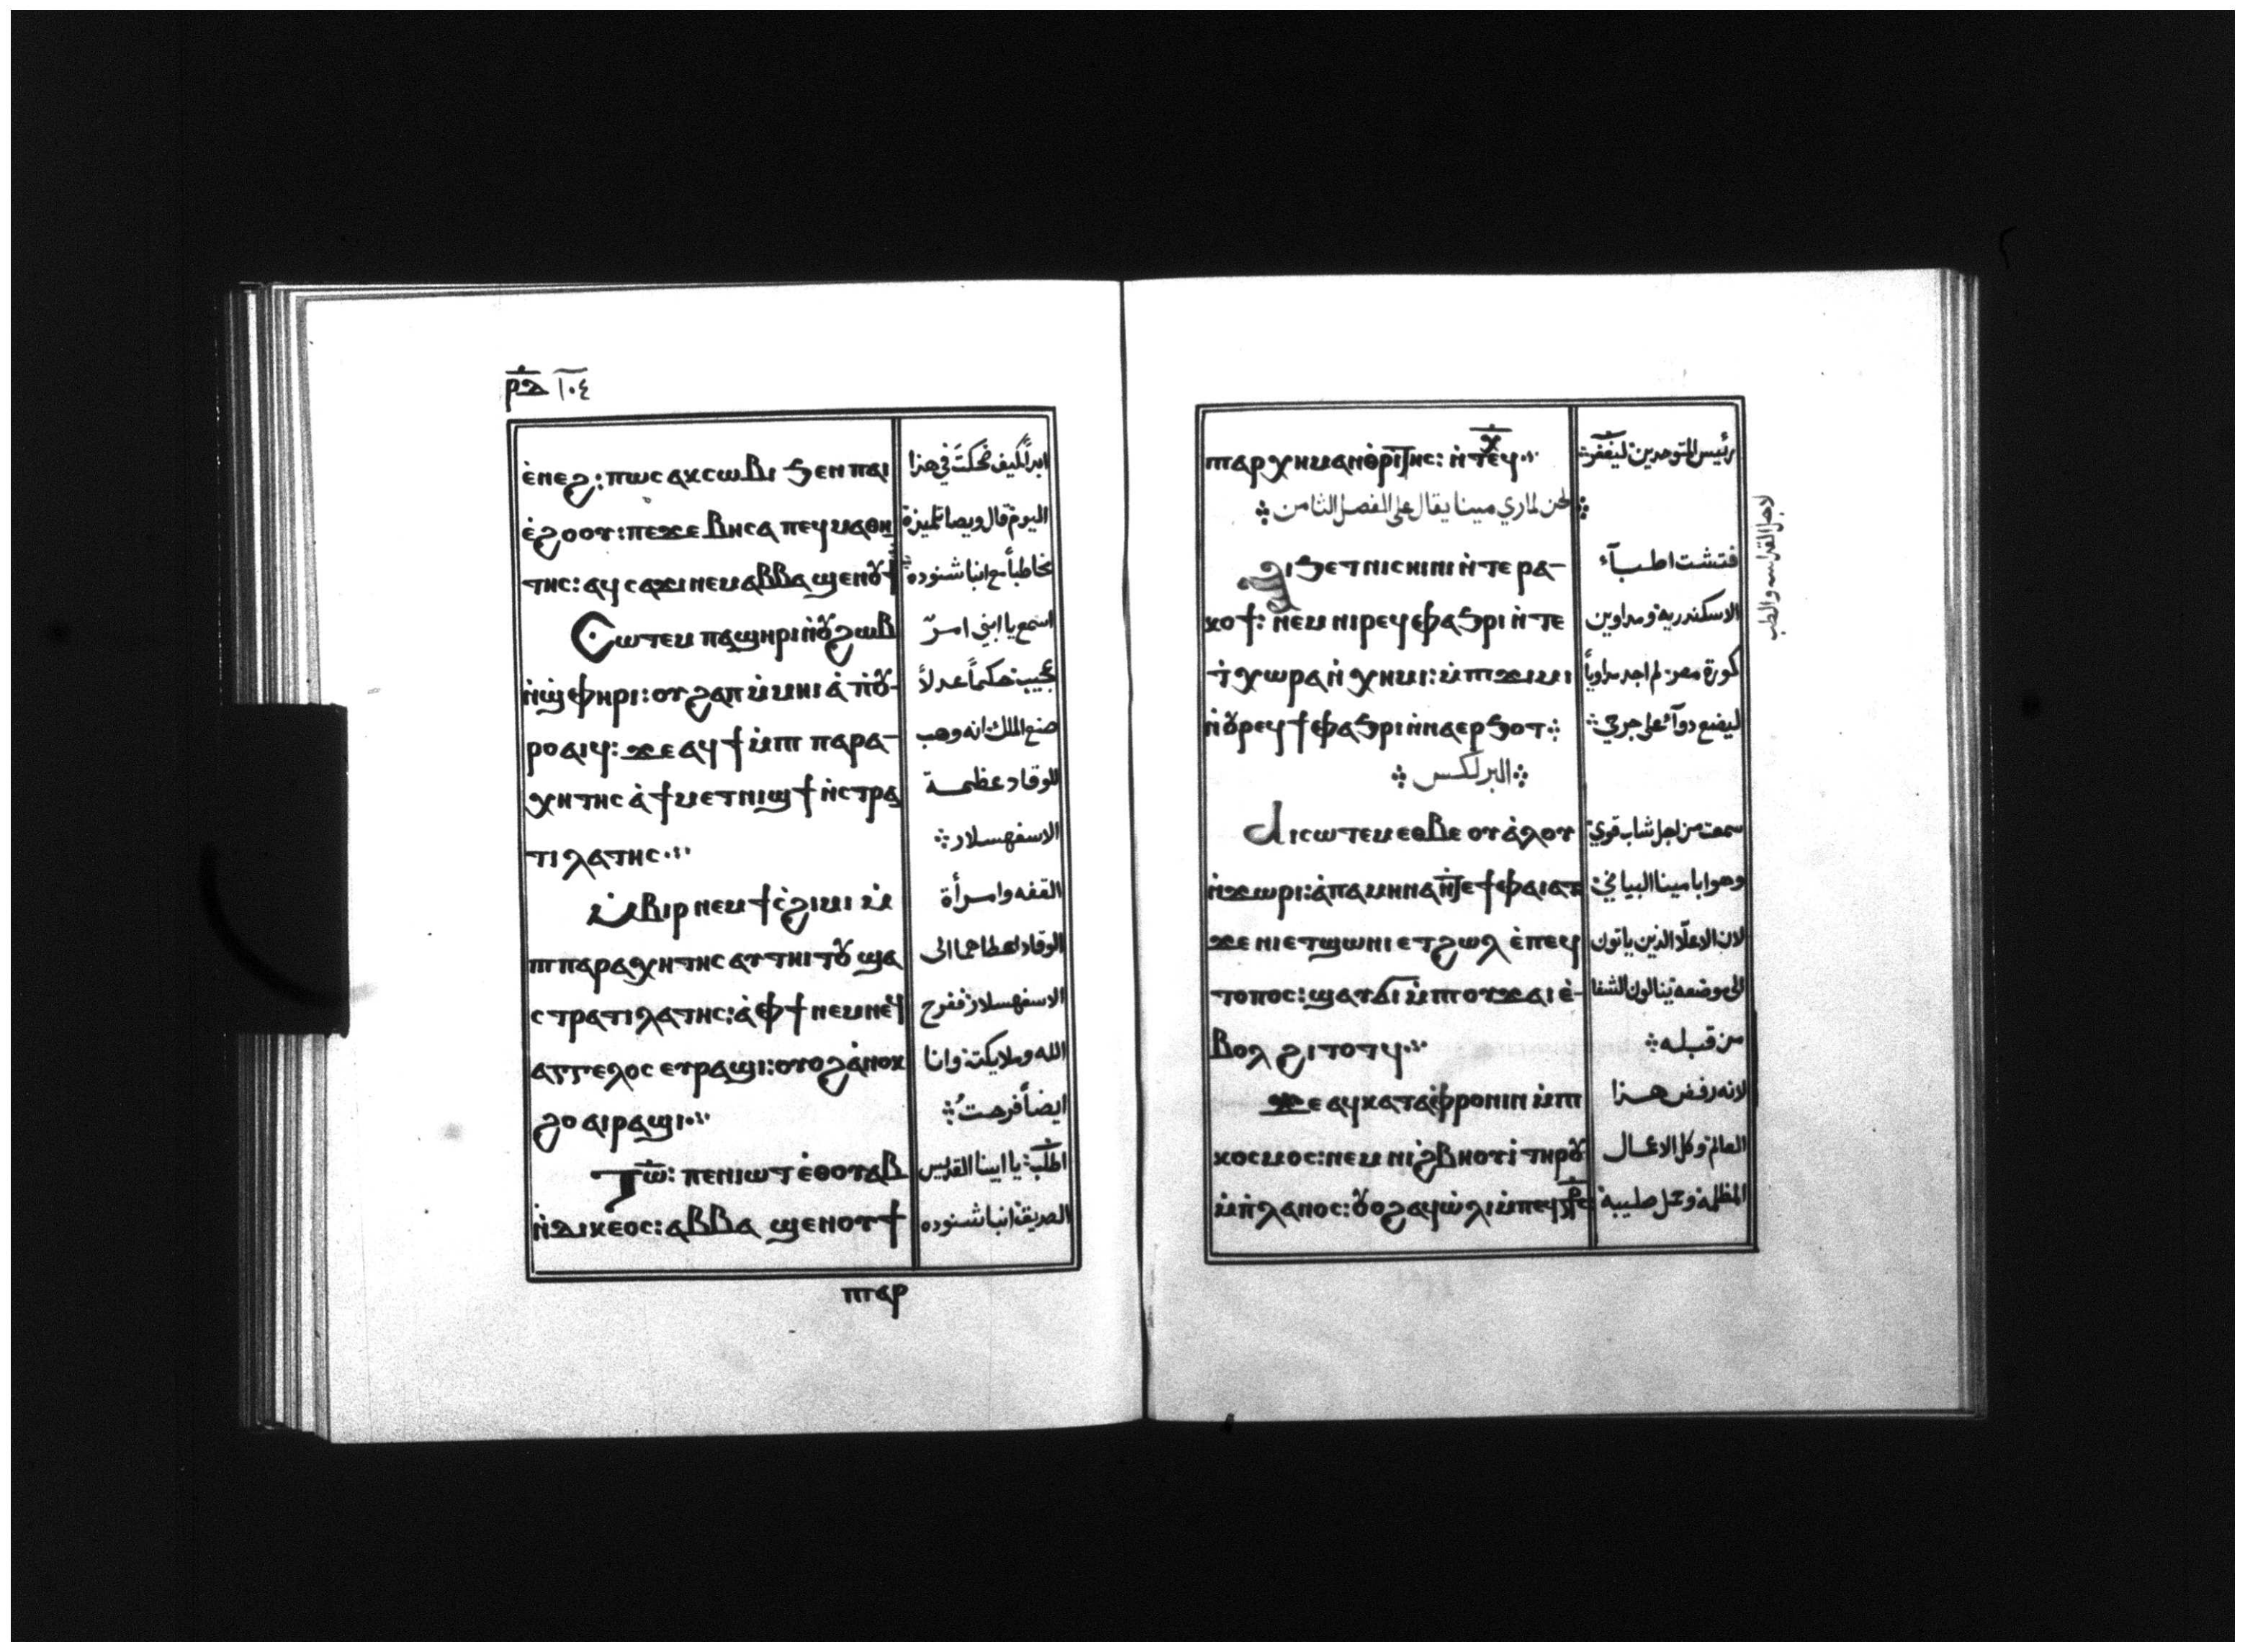 ⲣⲇ ١٠٤
ⲉ̀ⲛⲉϩ: ⲡⲱⲥ ⲁⲕⲥⲱⲃⲓ ϧⲉⲛ ⲡⲁⲓ ابداً كيف ضحكت في هذا
ⲉ̀ϩⲟⲟⲩ: ⲡⲉϫⲉ ⲃⲏⲥⲁ ⲡⲉϥⲙⲁⲑⲏ اليوم قال ويصا تلميزة
ⲧⲏⲥ: ⲁϥⲥⲁϫⲓ ⲛⲉⲙ ⲁⲃⲃⲁ ϣⲉⲛⲟⲩϯ مخاطباً مع انبا شنوده
Ⲥⲱⲧⲉⲙ ⲡⲁϣⲏⲣⲓ ⲛ̀ⲟⲩϩⲱⲃ اسمع يا ابني امرٌ
ⲛ̀ϣ̀ⲫⲏⲣⲓ: ⲟⲩϩⲁⲡ ⲙ̀ⲙⲏⲓ ⲁ̀ ⲡ̀ⲟⲩ- عجيب حكماً عدلاً
ⲣⲟ ⲁⲓϥ: ϫⲉ ⲁϥϯ ⲙ̀ⲡ ⲡⲁⲣⲁ- صنع الملك انه وهب
ⲭⲏⲧⲏⲥ ⲁ̀ ϯⲙⲉⲧⲛⲓϣϯ ⲛ̀ⲥⲧⲣⲁ للوقاد عظمة
ⲧⲓⲗⲁⲧⲏⲥ الاسفهسلار
ⲙ̀ⲃⲓⲣ ⲛⲉⲙ ϯⲥ̀ϩⲓⲙⲓ ⲙ̀ القفه وامرأة
ⲡ ⲡⲁⲣⲁⲭⲏⲧⲏⲥ ⲁⲩⲧⲏⲓⲧⲟⲩ ϣⲁ الوقاد اعطاهما الى
ⲥⲧⲣⲁⲧⲓⲗⲁⲧⲏⲥ: ⲁ̀ ⲫϯ ⲛⲉⲙ ⲛⲉϥ الاسفهسلار ففرح
ⲁⲅⲅⲉⲗⲟⲥ ⲉⲩⲣⲁϣⲓ: ⲟⲩⲟϩ ⲁ̀ⲛⲟⲕ الله وملايكته وانا
ϩⲟ ⲁⲓⲣⲁϣⲓ ايضاً فرحت
Ⲧⲱ: ⲡⲉⲛⲓⲱⲧ ⲉ̀ⲑⲟⲩⲁⲃ اطلب: يا ابينا القديس
ⲛ̀ⲇⲓⲕⲉⲟⲥ: ⲁⲃⲃⲁ ϣⲉⲛⲟⲩϯ الصديق انبا شنوده
ⲡⲁⲣ
ⲡⲁⲣⲭⲏⲙⲁⲛⲇⲣⲓⲧⲏⲥ: ⲛ̀ⲧⲉϥⲭ رئيس المتوحدين ليغفر
لحن لماري مينا يقال على المفصل الثامن
Ϧⲓϧⲉⲧ ⲛⲓⲥⲏⲓⲛⲓ ⲛ̀ⲧⲉ ⲣⲁ- فتشت اطبآء
ⲕⲟϯ: ⲛⲉⲙ ⲛⲓⲣⲉϥⲫⲁϧⲣⲓ ⲛ̀ⲧⲉ الاسكندرية ومداوين
ϯⲭⲱⲣⲁ ⲛ̀ⲭⲏⲙⲓ: ⲙ̀ⲡϫⲓⲙⲓ كورة مصر: لم اجد مداوياً
ⲛ̀ⲟⲩⲣⲉϥϯⲫⲁϧⲣⲓ ⲛ̀ⲛⲁⲉⲣϧⲟⲧ ليضع دوآء على جرحي
البرلكس
Ⲁⲓⲥⲱⲧⲉⲙ ⲉⲑⲃⲉ ⲟⲩⲁ̀ⲗⲟⲩ سمعت من اجل شاب قوي
ⲛ̀ϫⲱⲣⲓ: ⲁ̀ⲡⲁ ⲙⲏⲛⲁ ⲛ̀ⲧⲉ ϯⲫⲁⲓⲁⲧ وهو ابا مينا البياني
ϫⲉ ⲛⲓⲉⲧϣⲱⲛⲓ ⲉⲧϩⲱⲗ ⲉ̀ⲡⲉϥ لان الاعلّا الذين ياتون
ⲧⲟⲡⲟⲥ: ϣⲁⲩϭⲓ ⲙ̀ⲡⲟⲩϫⲁⲓ ⲉ̀- الى موضعه ينالون الشفا
ⲃⲟⲗ ϩⲓⲧⲟⲧϥ من قبله
ϫⲉ ⲁϥⲕⲁⲧⲁⲫⲣⲟⲛⲓⲛ ⲙ̀ⲡ لانه رفض هذا
ⲕⲟⲥⲙⲟⲥ: ⲛⲉⲙ ⲛⲓϩⲃⲏⲟⲩⲓ̀ ⲧⲏⲣⲟⲩ العالم وكل الاعمال
ⲙ̀ⲡ̀ⲗⲁⲛⲟⲥ: ⲟⲩⲟϩ ⲁϥⲱ̀ⲗⲓ ⲙ̀ⲡⲉϥ المظلمة وحمل صليبه